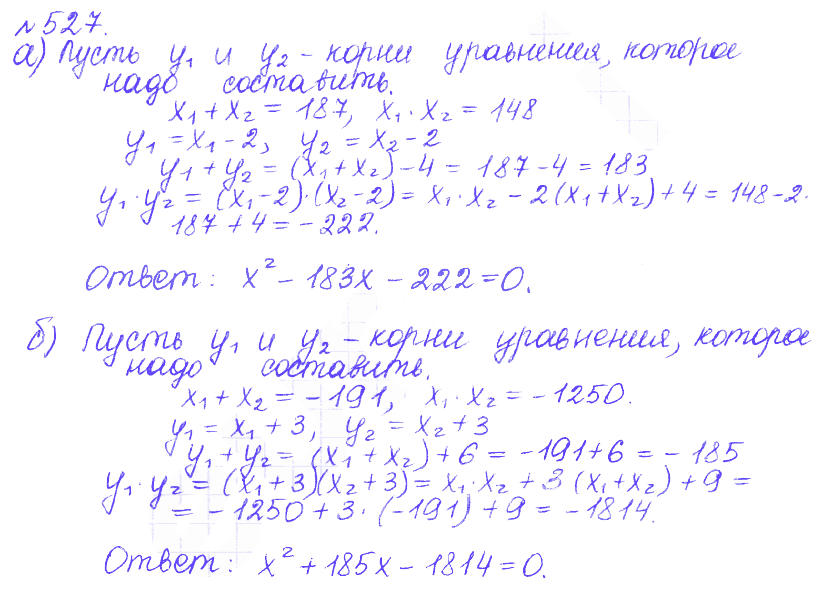 №527.
а) Пусть y₁ и y₂ – корни уравнения, которое
надо составить.
x₁ + x₂ = 187, x₁ · x₂ = 148
y₁ = x₁ – 2, y₂ = x₂ – 2
y₁ + y₂ = (x₁ + x₂) – 4 = 187 – 4 = 183
y₁ · y₂ = (x₁ – 2) · (x₂ – 2) = x₁ · x₂ – 2(x₁ + x₂) + 4 = 148 – 2 ·
187 + 4 = – 222.
Ответ: x² – 183x – 222 = 0.
б) Пусть y₁ и y₂ – корни уравнения, которое
надо составить.
x₁ + x₂ = – 191, x₁ · x₂ = – 1250.
y₁ = x₁ + 3, y₂ = x₂ + 3
y₁ + y₂ = (x₁ + x₂) + 6 = – 191 + 6 = – 185
y₁ · y₂ = (x₁ + 3)(x₂ + 3) = x₁ · x₂ + 3 (x₁ + x₂) + 9 =
= – 1250 + 3 · (–191) + 9 = – 1814.
Ответ: x² + 185x – 1814 = 0.